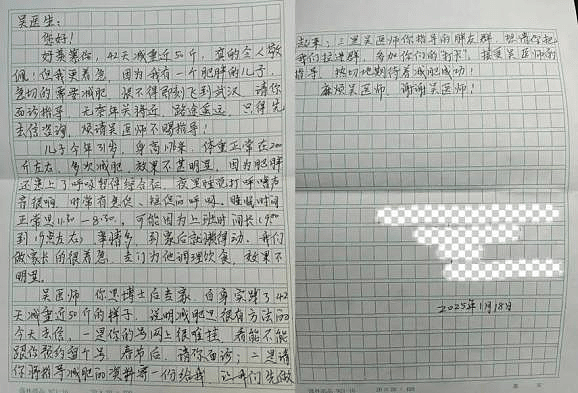 吴医生:
您好!
好羡慕你,42天减重近50斤,真的令人敬
佩!但我更着急,因为我有一个肥胖的儿子,
急切的需要减肥,恨不得即刻飞到武汉,请你
面诊指导,无奈年关将近,路途遥远,只得先
去信咨询,烦请吴医师不赐指导!
儿子今年31岁,身高178米,体重正常在200
斤左右,多次减肥,效果不甚明显,因为肥胖
还患上了呼吸暂停综合征,夜里睡觉打呼噜声
音很响,时常有急促、短促的呼吸,睡眠时间
正常是11:30-8:30,可能因为上班时间长(9点
到19点左右)
到家后就懒得动,我们
做家长的很着急,专门为他调理饮食,效果不
明显。
吴医师,你是博士后专家,自身实践了42
天减重近50斤的榜样,说明减肥还是很有方法的
今天去信,一是你的号网上很难挂,看能不能
跟你预约个号,春节后,请你面诊;二是请
你将指导减肥的资料寄一份给我,让我们先做
起来;三是吴医师你指导的朋友群,恳请你把
我们拉进群,参加你们的打卡,接受吴医师的
指导,热切地期待着减肥成功!
麻烦吴医师,谢谢吴医师!
2025年1月18日